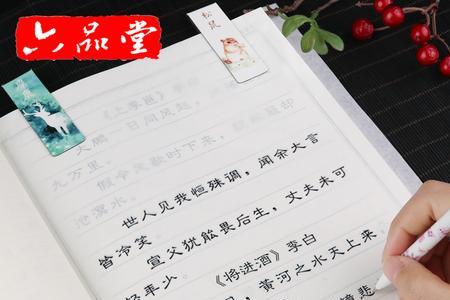 六品堂
松鼠
《上李邕》
大鹏一日同风起，
九万里。 假令风歇时下来，
沧溟水。
世人见我恒殊调，闻余大言
皆冷笑。 宣父犹能畏后生，丈夫未可
轻年少。 《将进酒》李白
，黄河之水天上来
悲